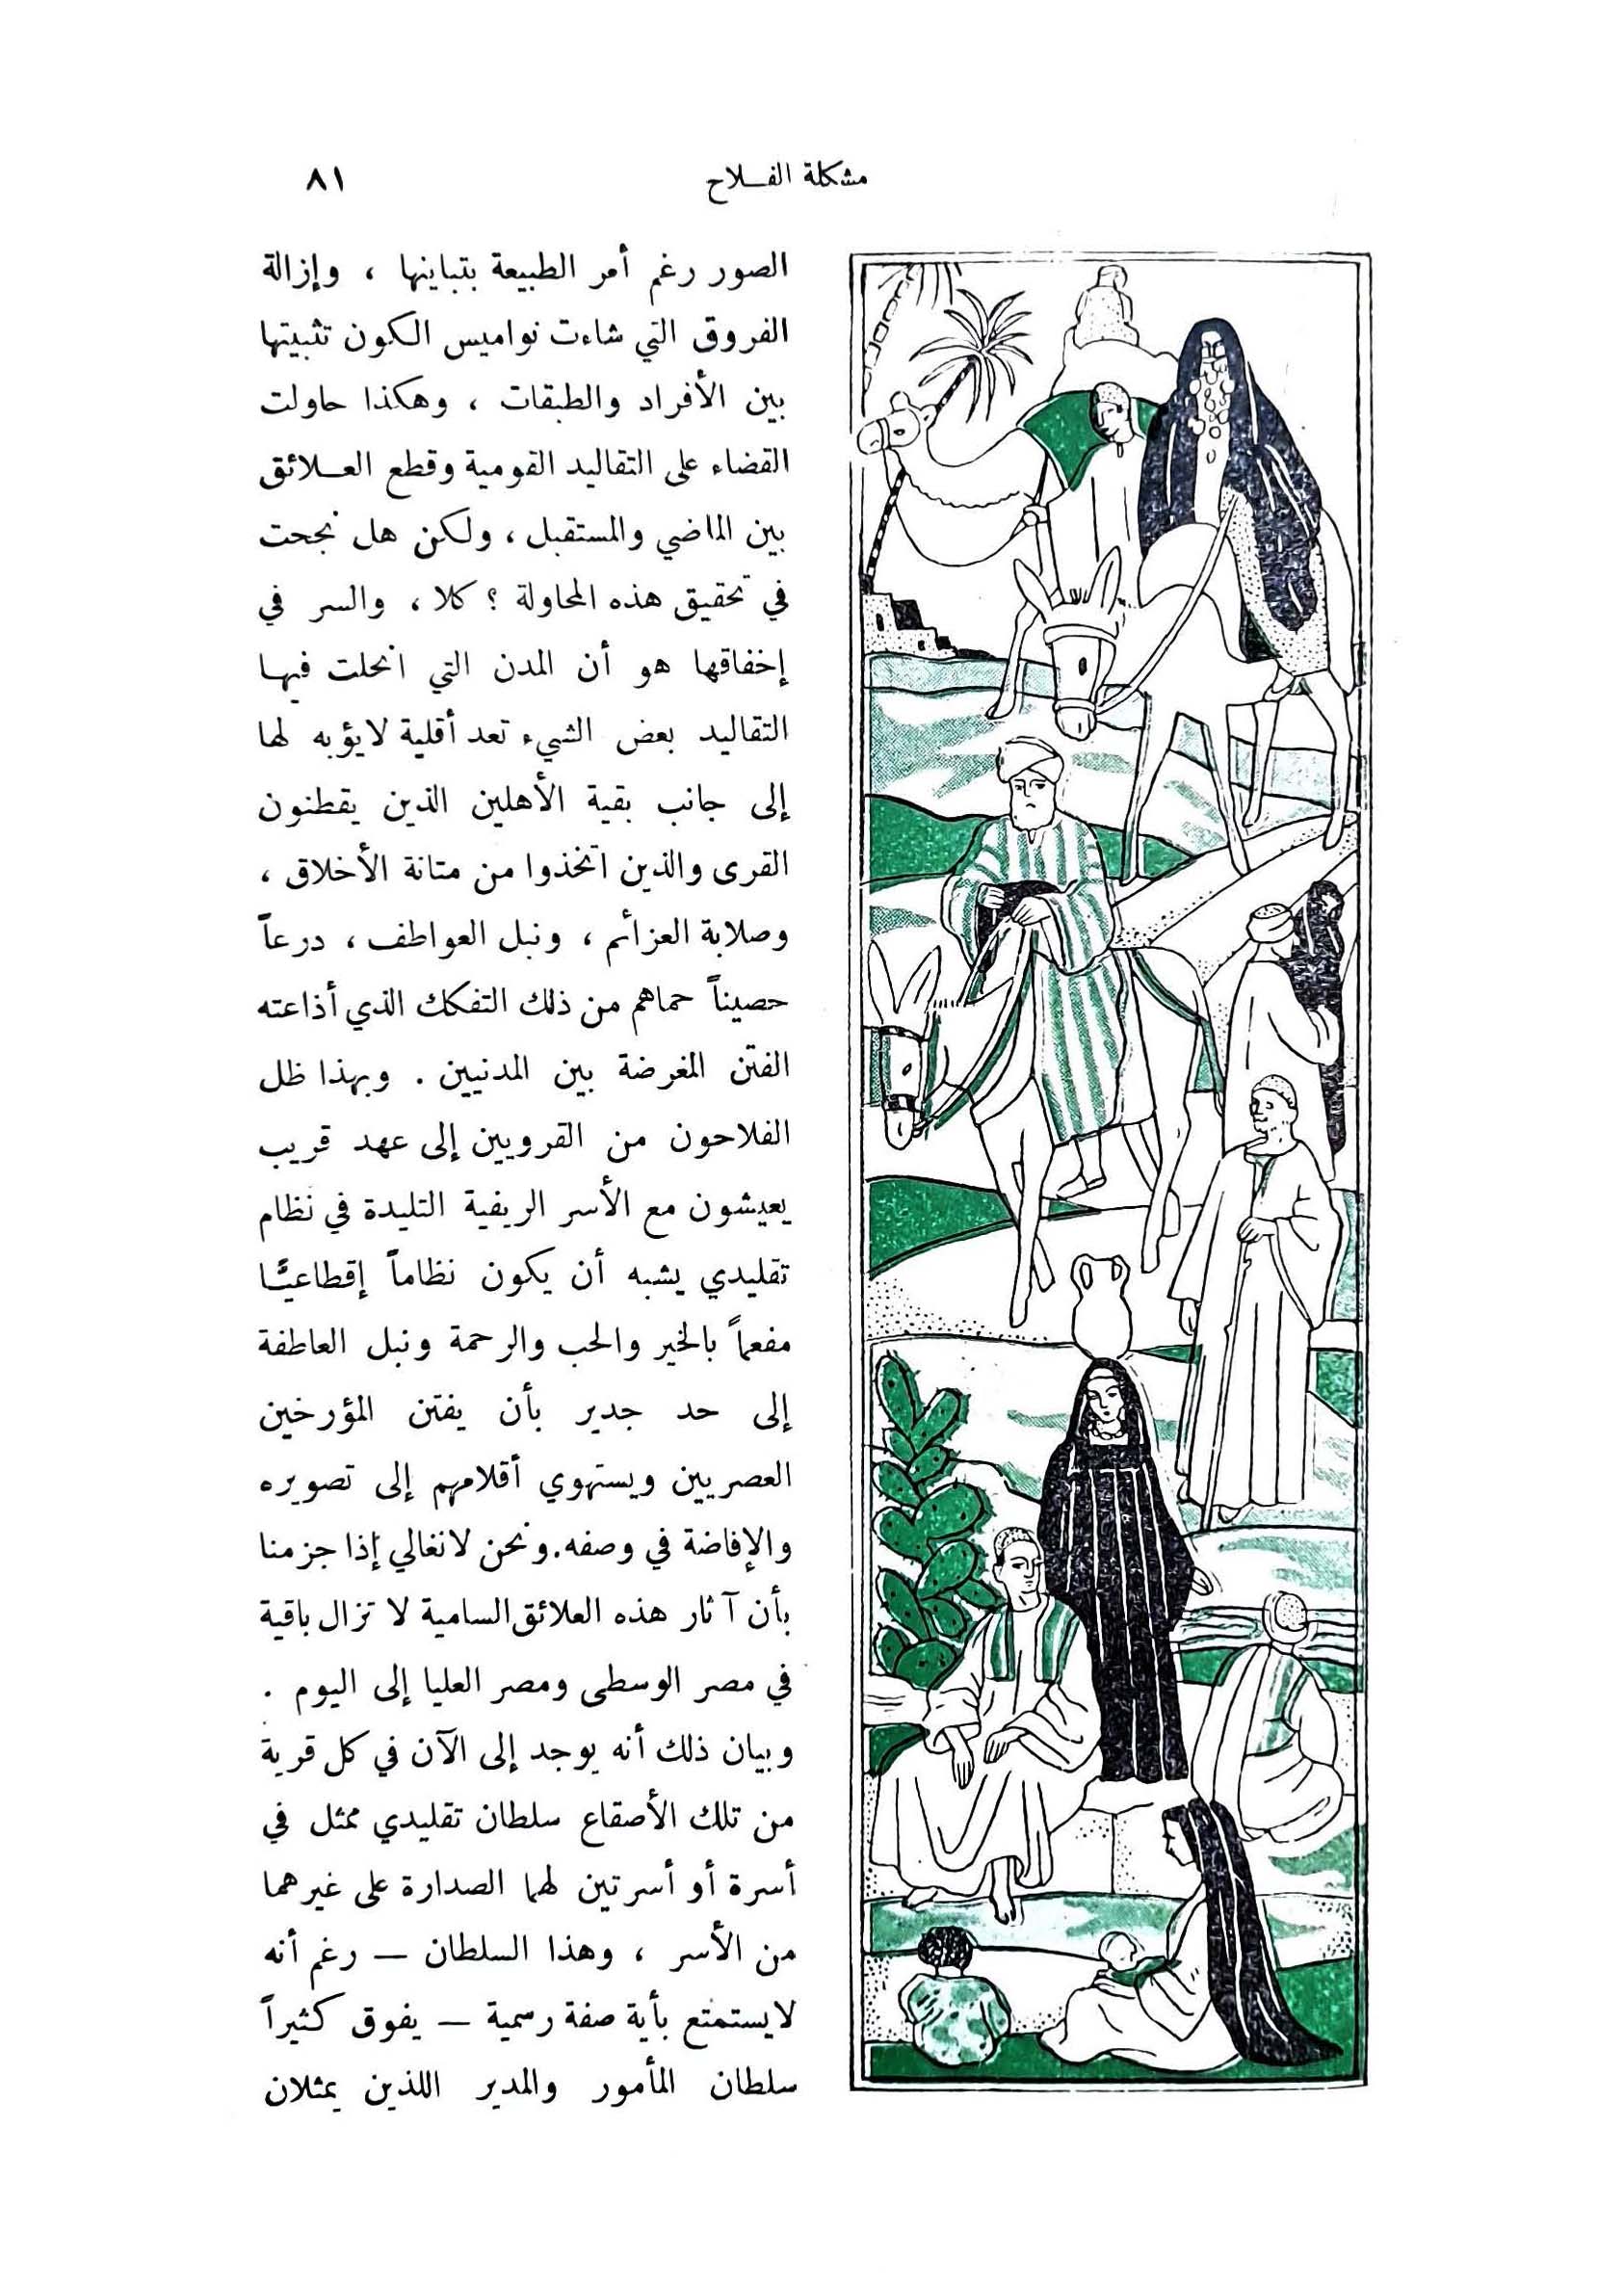 مشكلة الفلاح
٨١
الصور رغم أمر الطبيعة بتباينها ، وإزالة
الفروق التي شاءت نواميس الكون تثبيتها
بين الأفراد والطبقات ، وهكذا حاولت
القضاء على التقاليد القومية وقطع العلائق
بين الماضي والمستقبل ، ولكن هل نجحت
في تحقيق هذه المحاولة ؟ كلا ، والسر في
إخفاقها هو أن المدن التي انحلت فيها
التقاليد بعض الشيء تعد أقلية لا يؤبه لها
إلى جانب بقية الأهلين الذين يقطنون
القرى والذين اتخذوا من متانة الأخلاق ،
وصلابة العزائم ، ونبل العواطف ، درعاً
حصيناً حماهم من ذلك التفكك الذي أذاعته
الفتن المغرضة بين المدنيين . وبهذا ظل
الفلاحون من القرويين إلى عهد قريب
يعيشون مع الأسر الريفية التليدة في نظام
تقليدي يشبه أن يكون نظاماً إقطاعيًّا
مفعماً بالخير والحب والرحمة ونبل العاطفة
إلى حد جدير بأن يفتن المؤرخين
العصريين ويستهوي أقلامهم إلى تصويره
والإفاضة في وصفه. ونحن لا نغالي إذا جزمنا
بأن آثار هذه العلائق السامية لا تزال باقية
في مصر الوسطى ومصر العليا إلى اليوم .
وبيان ذلك أنه يوجد إلى الآن في كل قرية
من تلك الأصقاع سلطان تقليدي ممثل في
أسرة أو أسرتين لهما الصدارة على غيرهما
من الأسر ، وهذا السلطان — رغم أنه
لا يستمتع بأية صفة رسمية — يفوق كثيراً
سلطان المأمور والمدير اللذين يمثلان